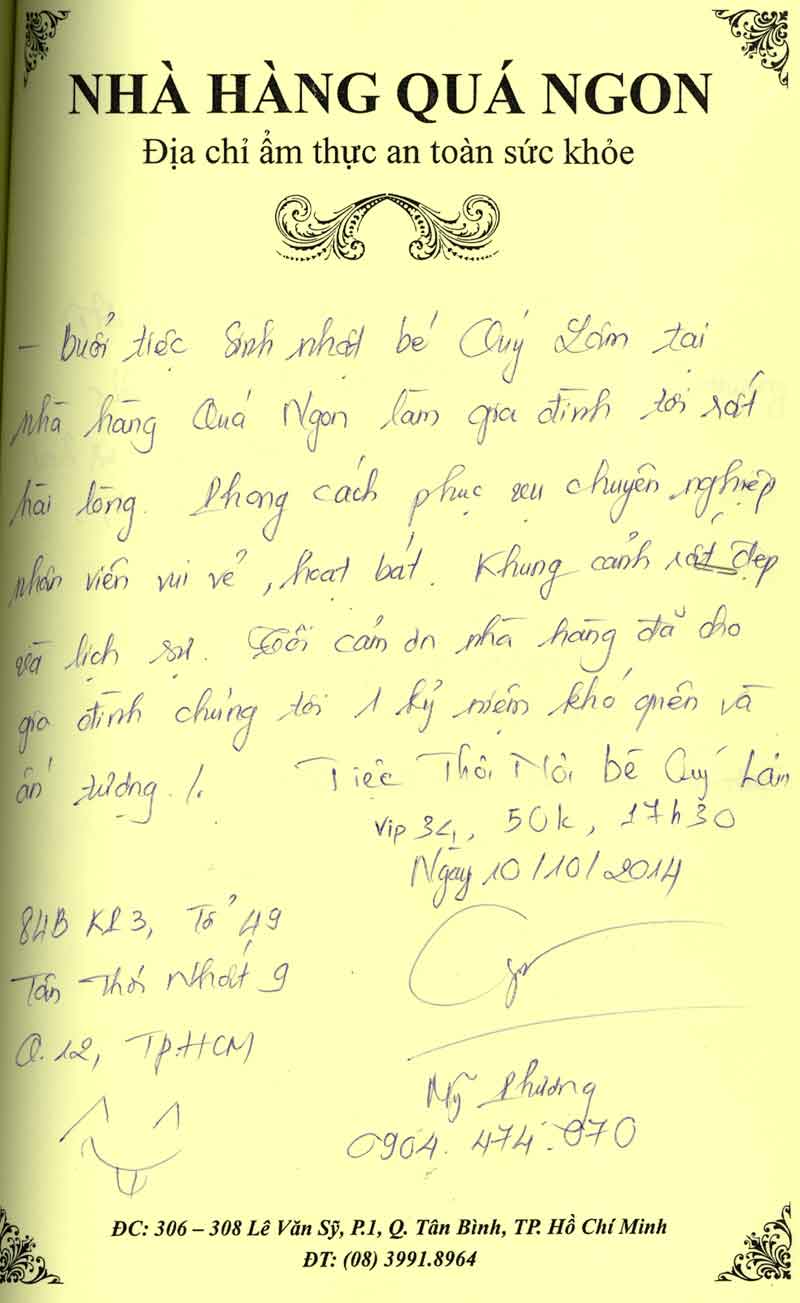 NHÀ HÀNG QUÁ NGON
Địa chỉ ẩm thực an toàn sức khỏe
- buổi tiệc Sinh nhật bé Quý Lâm tại
nhà hàng Quá Ngon làm gia đình tôi rất
hài lòng. Phong cách phục vụ chuyên nghiệp
nhân viên vui vẻ, hoạt bát. Khung cảnh rất đẹp
và lịch sự. Tôi cảm ơn nhà hàng đã cho
gia đình chúng tôi 1 kỷ niệm khó quên và
ấn tượng ./.
Tiệc Thôi Nôi bé Quý Lâm
Vip 34, 50k, 17h30
Ngày 10/10/2014
84B KP3, Tổ 49
Tân Thới Nhất 9
Q.12, TP.HCM
Mỹ Phương
0904.474.070
ĐC: 306 – 308 Lê Văn Sỹ, P.1, Q. Tân Bình, TP. Hồ Chí Minh
ĐT: (08) 3991.8964